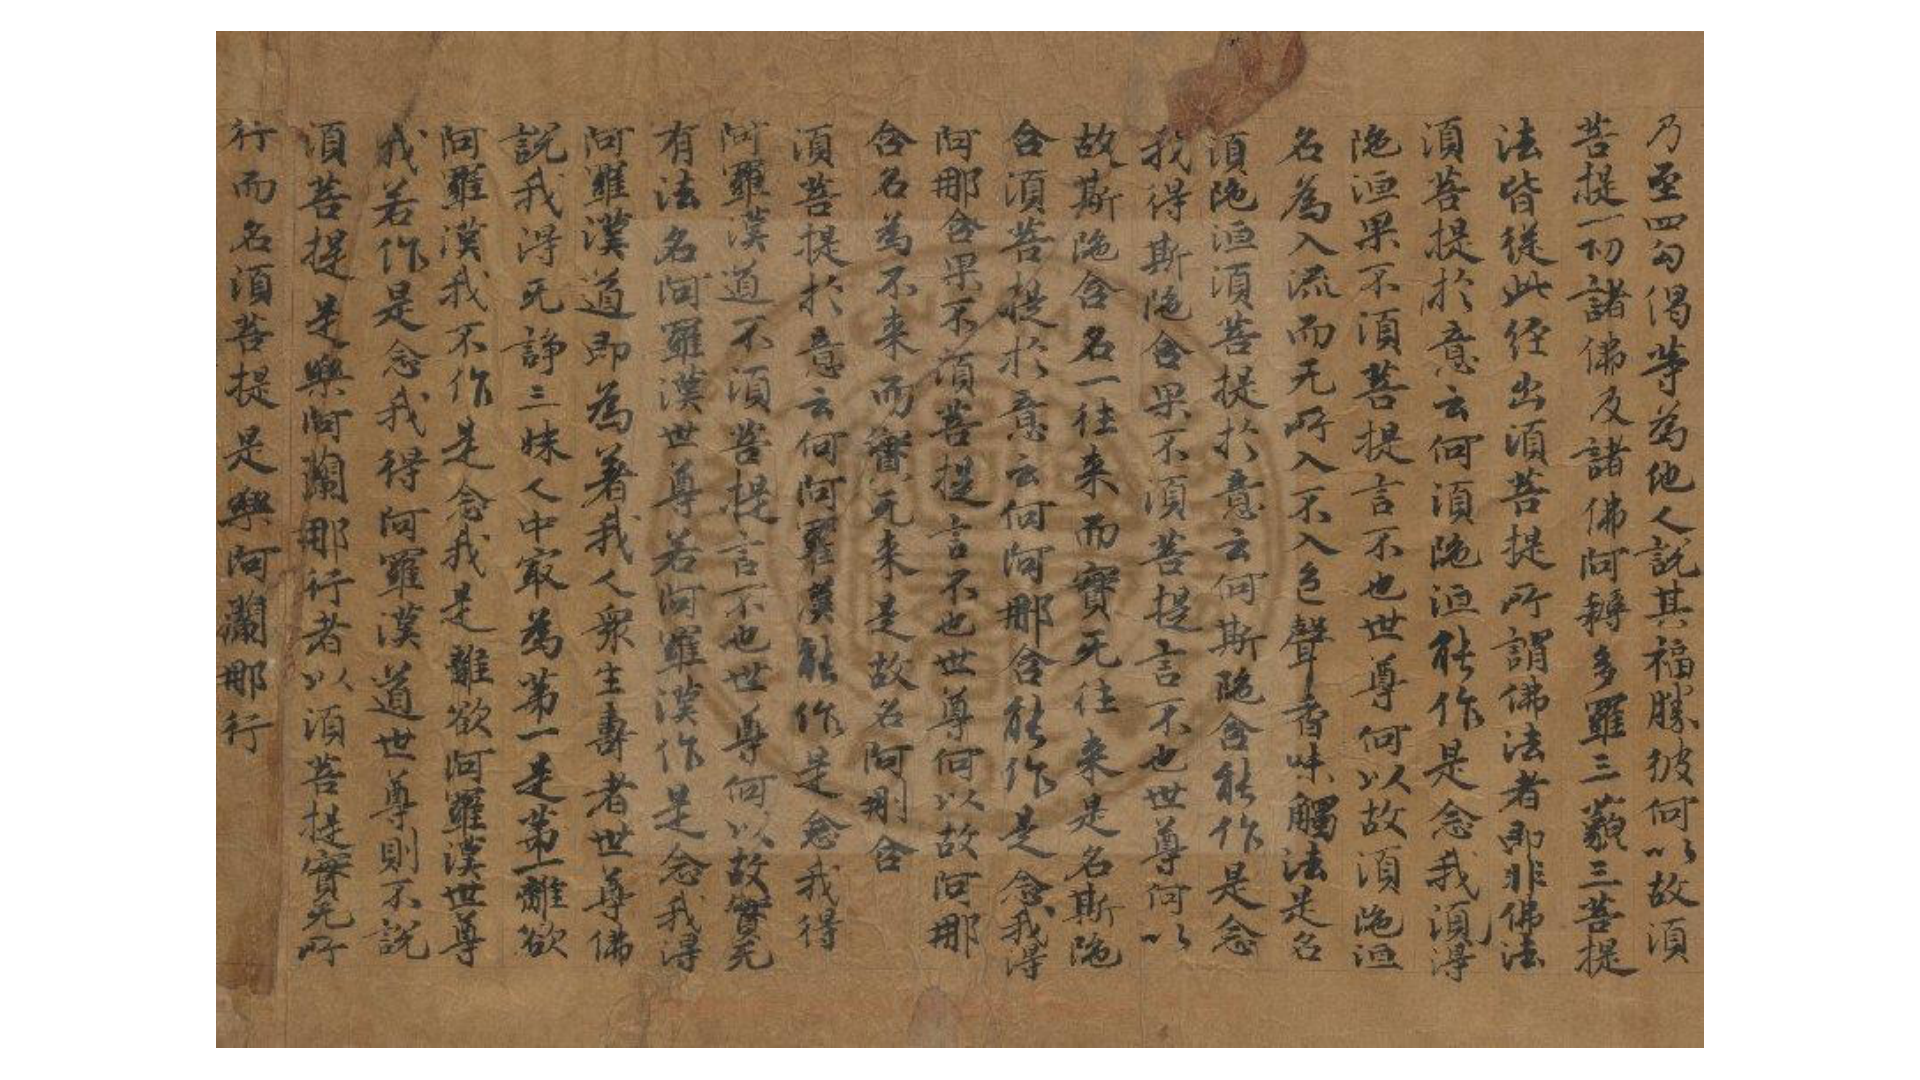 乃至四勾偈等為他人說其福勝彼何以故須
菩提一切諸佛及諸佛阿耨多羅三藐三菩提
法皆從此経出須菩提所謂佛法者即非佛法
須菩提於意云何須陁洹能作是念我須得
陁洹果不須菩提言不也世尊何以故須陁洹
名為入流而无所入不入色聲香味觸法是名
須陁洹須菩提於意云何斯陁含能作是念
我得斯陁含果不須菩提言不也世尊何以
故斯陁含名一往来而實无往来是名斯陁
含須菩提於意云何阿那含能作是念我得
阿那含果不須菩提言不也世尊何以故阿那
含名為不来而實无来是故名阿那含
須菩提於意云何阿羅漢能作是念我得
阿羅漢道不須菩提言不也世尊何以故實无
有法名阿羅漢世尊若阿羅漢作是念我得
阿羅漢道即為著我人衆生壽者世尊佛
說我得无諍三昧人中㝡為苐一是苐一離欲
阿羅漢我不作是念我是離欲阿羅漢世尊
我若作是念我得阿羅漢道世尊則不說
須菩提是樂阿蘭那行者以須菩提實无所
行而名須菩提是樂阿蘭那行